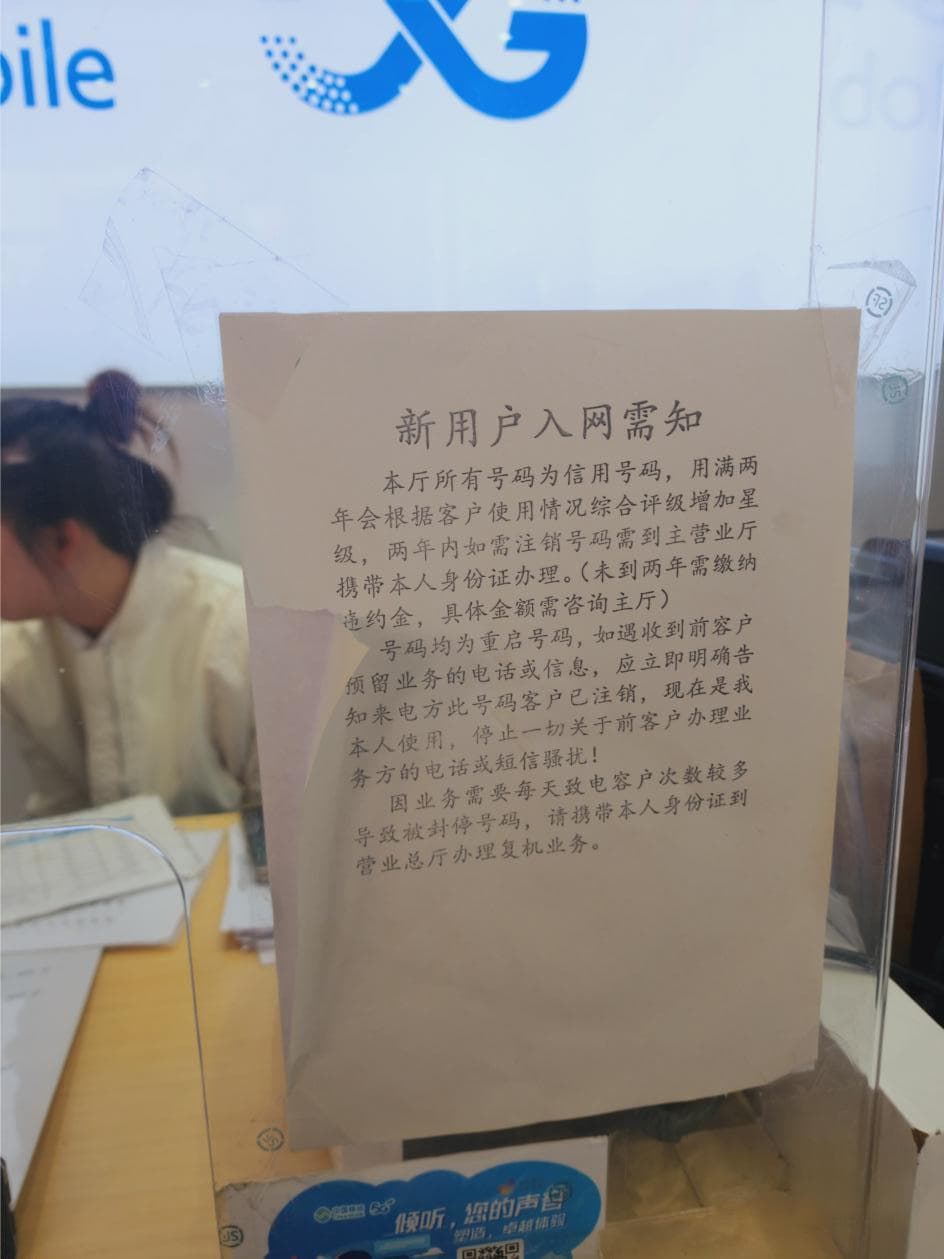 bile
5G
新用户入网需知
本厅所有号码为信用号码，用满两
年会根据客户使用情况综合评级增加星
级，两年内如需注销号码需到主营业厅
携带本人身份证办理。（未到两年需缴纳
违约金，具体金额需咨询主厅）
号码均为重启号码，如遇收到前客户
预留业务的电话或信息，应立即明确告
知来电方此号码客户已注销，现在是我
本人使用，停止一切关于前客户办理业
务方的电话或短信骚扰！
因业务需要每天致电容户次数较多
导致被封停号码，请携带本人身份证到
营业总厅办理复机业务。
中国移动 5G+
倾听，您的声音
塑造，卓越体验